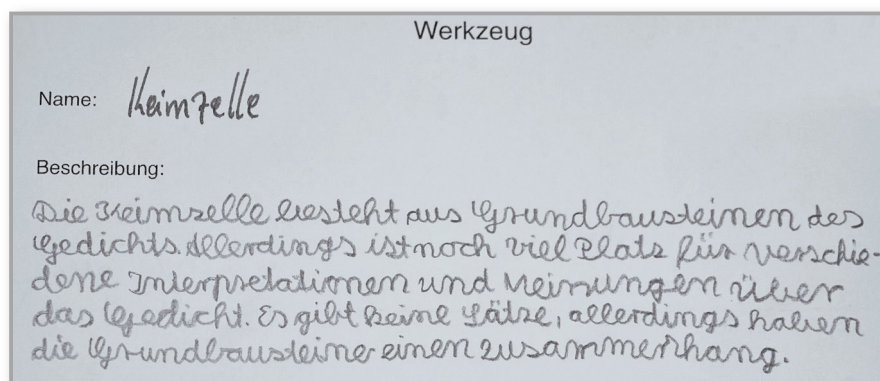 Werkzeug
Name: Keimzelle
Beschreibung:
Die Keimzelle besteht aus Grundbausteinen des
Gedichts. Allerdings ist noch viel Platz für verschie-
dene Interpretationen und Meinungen über
das Gedicht. Es gibt keine Sätze, allerdings haben
die Grundbausteine einen zusammenhang.